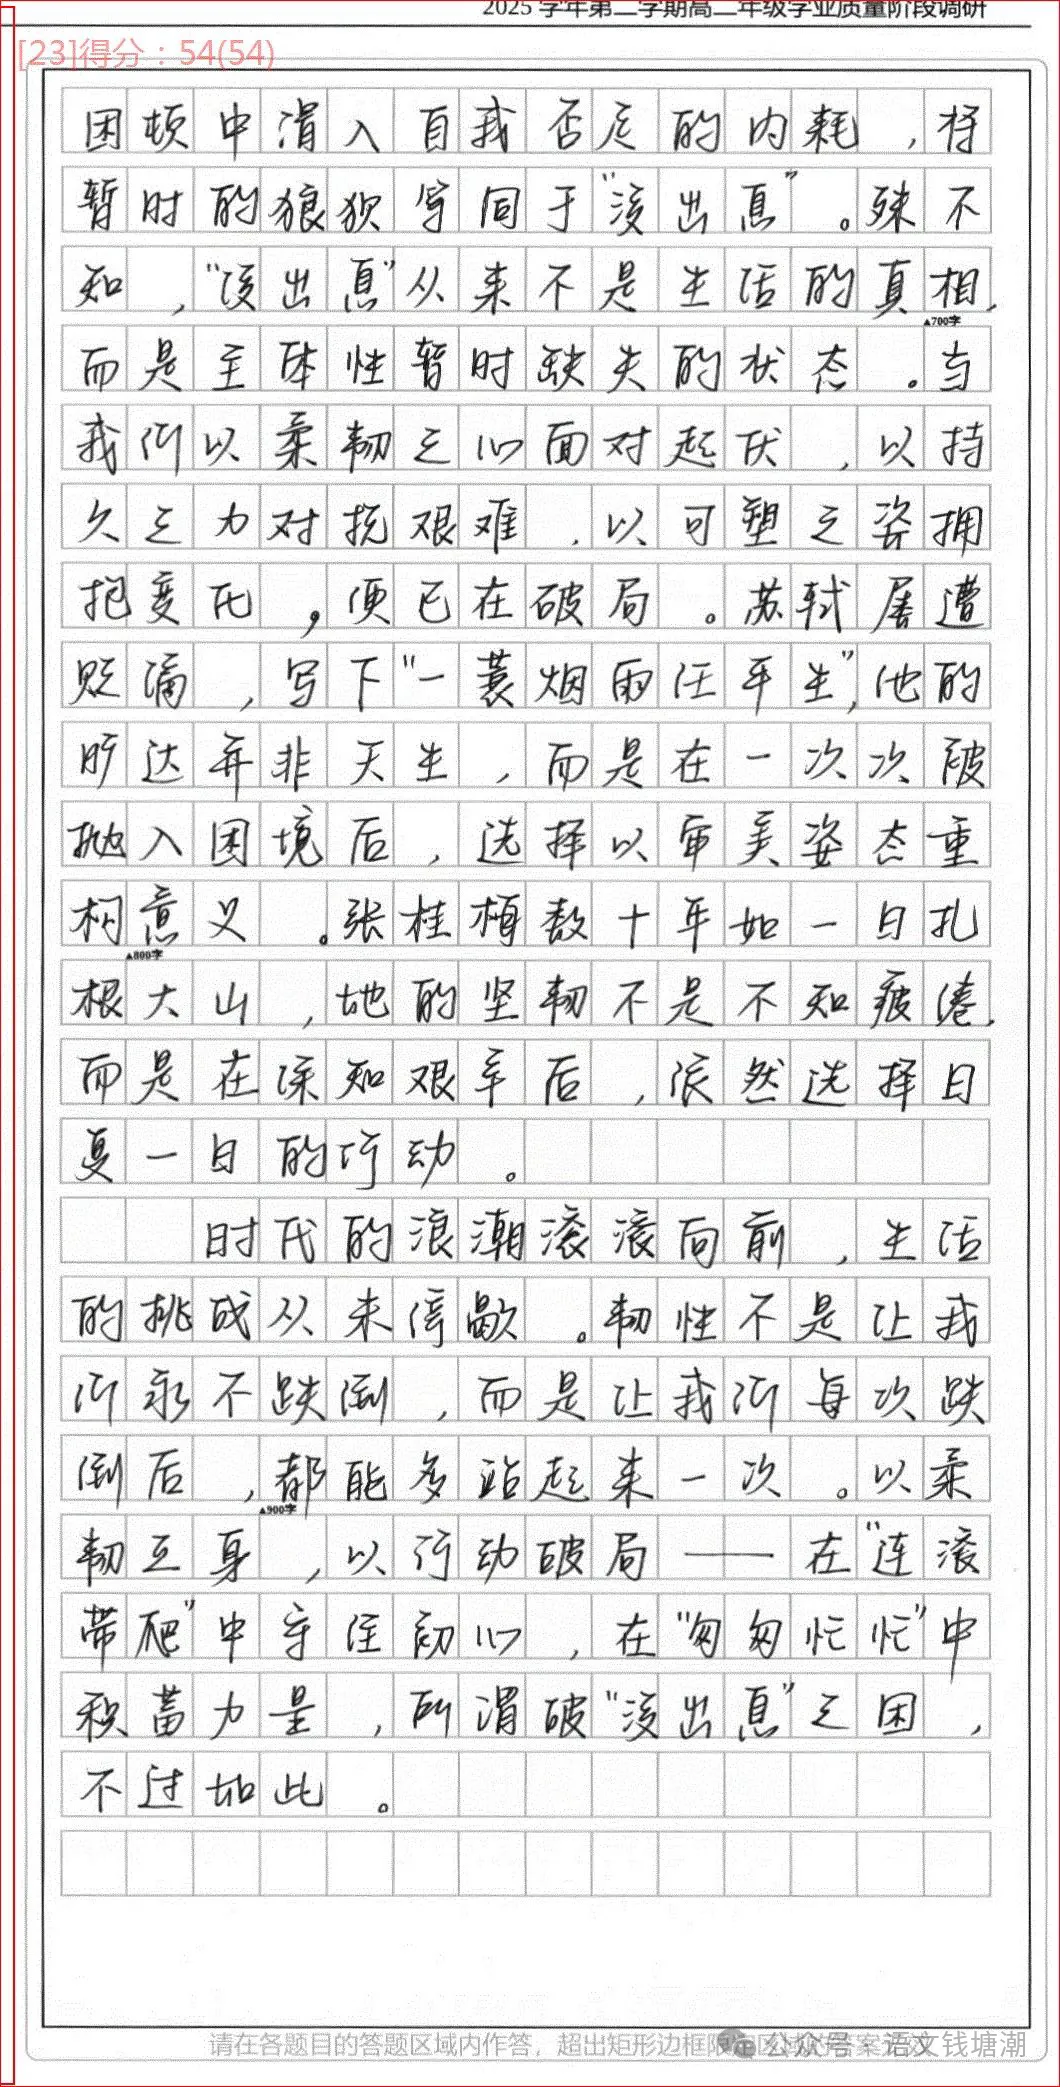 2025 学年第二学期高二年级学业质量阶段调研
[23]得分：54(54)
困顿中滑入自我否定的内耗，将
暂时的狼狈写同于“没出息”。殊不
知，“没出息”从来不是生活的真相，
▲700字
而是主体性暂时缺失的状态。当
我们以柔韧之心面对起伏，以持
久之力对抗艰难，以可塑之姿拥
抱变化，便已在破局。苏轼屡遭
贬谪，写下“一蓑烟雨任平生”，他的
旷达并非天生，而是在一次次被
抛入困境后，选择以审美姿态重
构意义。张桂梅数十年如一日扎
▲800字
根大山，她的坚韧不是不知疲倦，
而是在深知艰辛后，依然选择日
复一日的行动。
时代的浪潮滚滚向前，生活
的挑战从未停歇。韧性不是让我
们永不跌倒，而是让我们每次跌
倒后，都能多站起来一次。以柔
▲900字
韧立身，以行动破局——在“连滚
带爬”中守住初心，在“匆匆忙忙”中
积蓄力量，所谓破“没出息”之困，
不过如此。
请在各题目的答题区域内作答，超出矩形边框限定区域的答案无效
公众号·语文钱塘潮